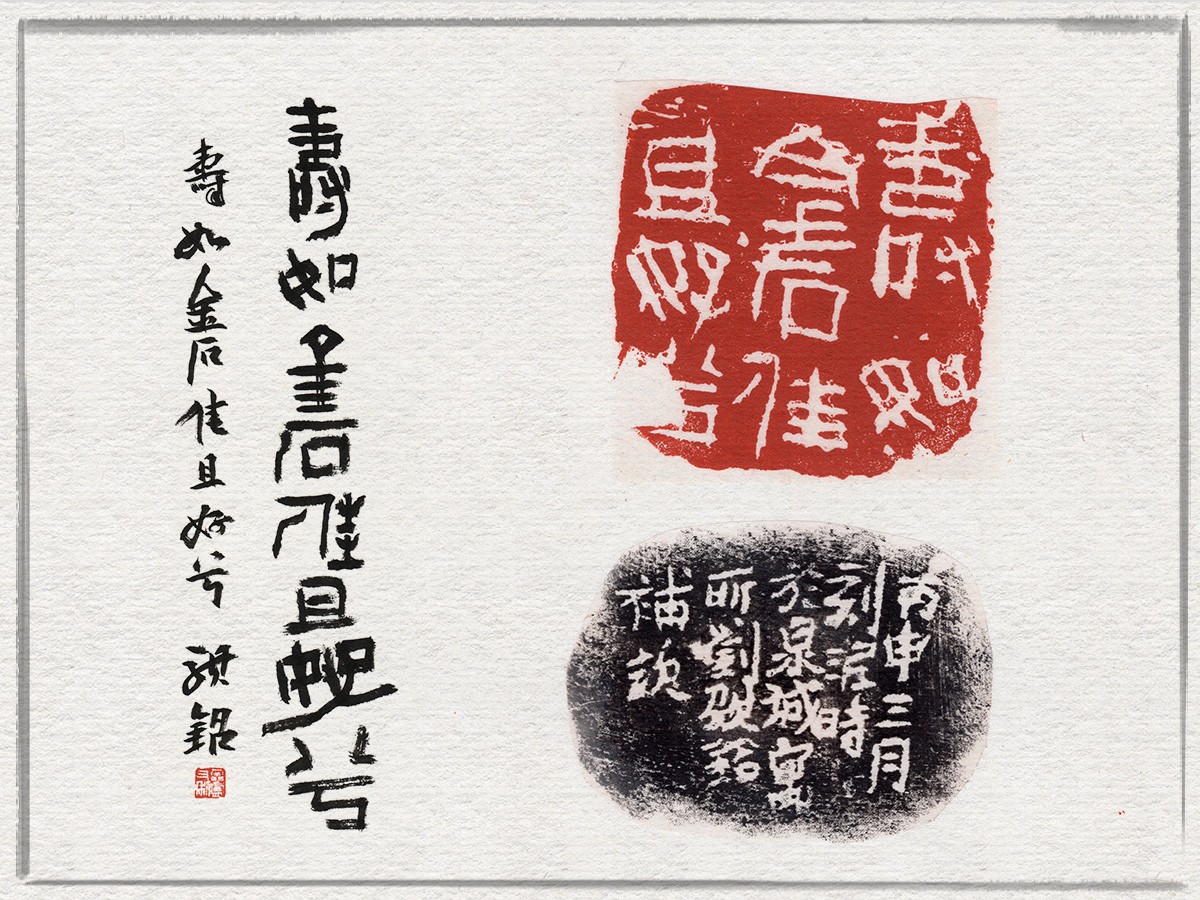 壽如
金石佳
且好兮
丙申三月
刻時
於泉城寓
所劉銘
補
壽如金石佳且好兮
壽如金石佳且好兮 銘